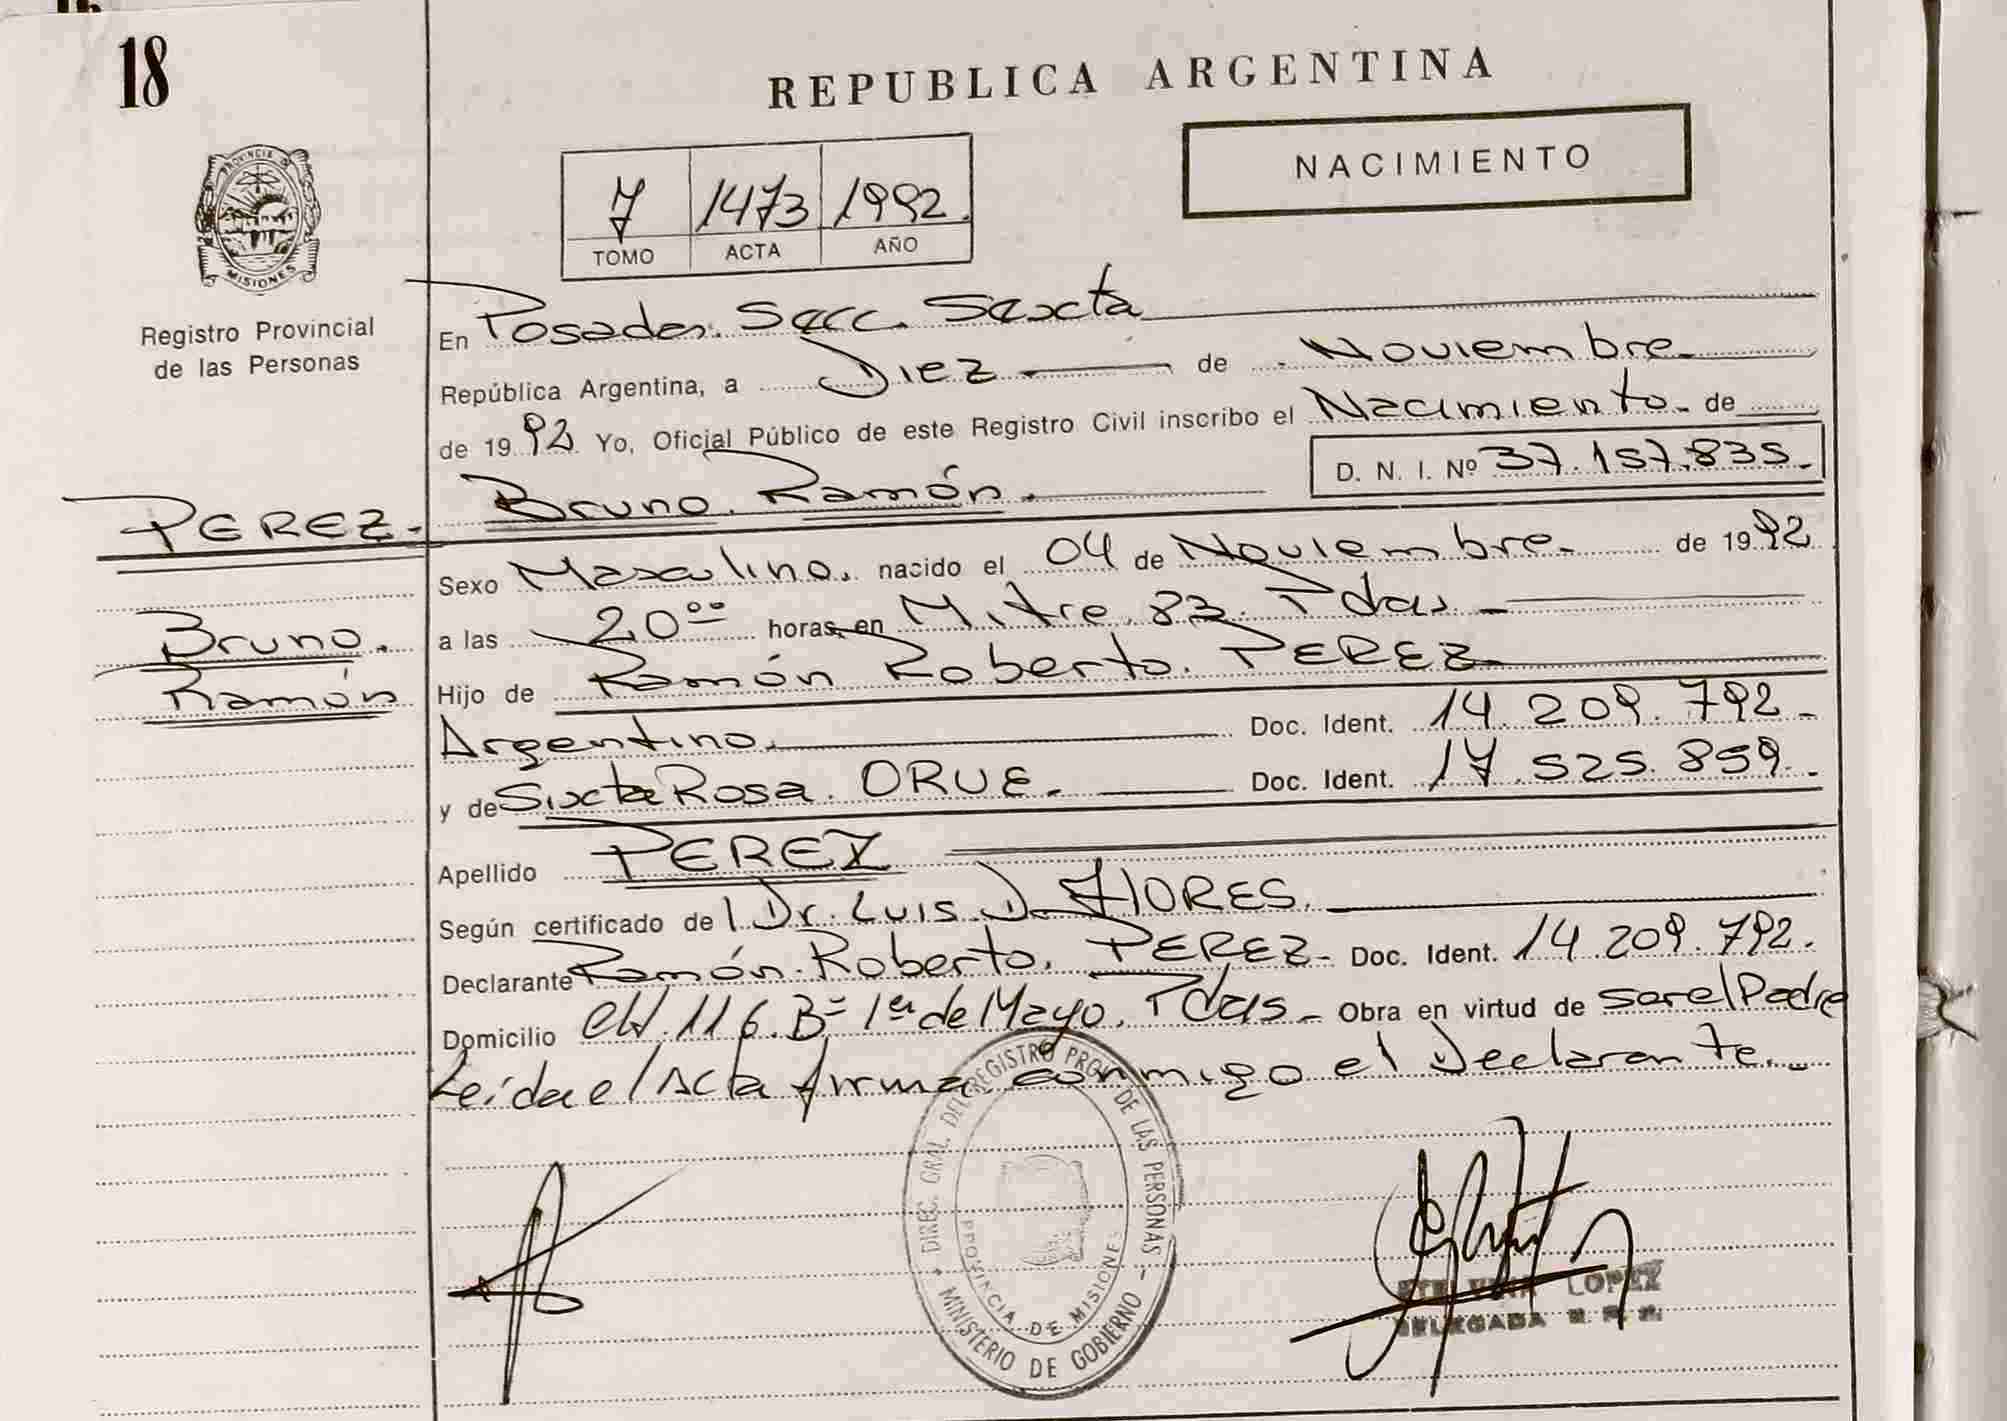 18
REPUBLICA ARGENTINA
NACIMIENTO
7 1473 1992.
TOMO ACTA AÑO
PROVINCIA DE
MISIONES
Registro Provincial
de las Personas
En Posadas. Secc. Sexta
República Argentina, a Diez de Noviembre
de 1992 Yo, Oficial Público de este Registro Civil inscribo el Nacimiento. de
D. N. I. Nº 37.157.835.
PEREZ. Bruno. Ramón.
Sexo Masculino. nacido el 04 de Noviembre. de 1992
Bruno.
Ramón
a las 20°° horas, en Mitre. 83. Pdas.
Hijo de Ramón Roberto. PEREZ
Argentino. Doc. Ident. 14.209.792.
y de Sixta Rosa. ORUE. Doc. Ident. 17.525.859.
Apellido PEREZ
Según certificado de Dr. Luis D. FlORES.
Declarante Ramón. Roberto. PEREZ. Doc. Ident. 14.209.792.
Domicilio CH. 116. Bº 1º de Mayo. Pdas. Obra en virtud de ser el Padre
Leída el Acta firma conmigo el Declarante.
DIREC. GRAL. DEL REGISTRO PROV. DE LAS PERSONAS
PROVINCIA DE MISIONES
MINISTERIO DE GOBIERNO
LOPEZ
DELEGADA